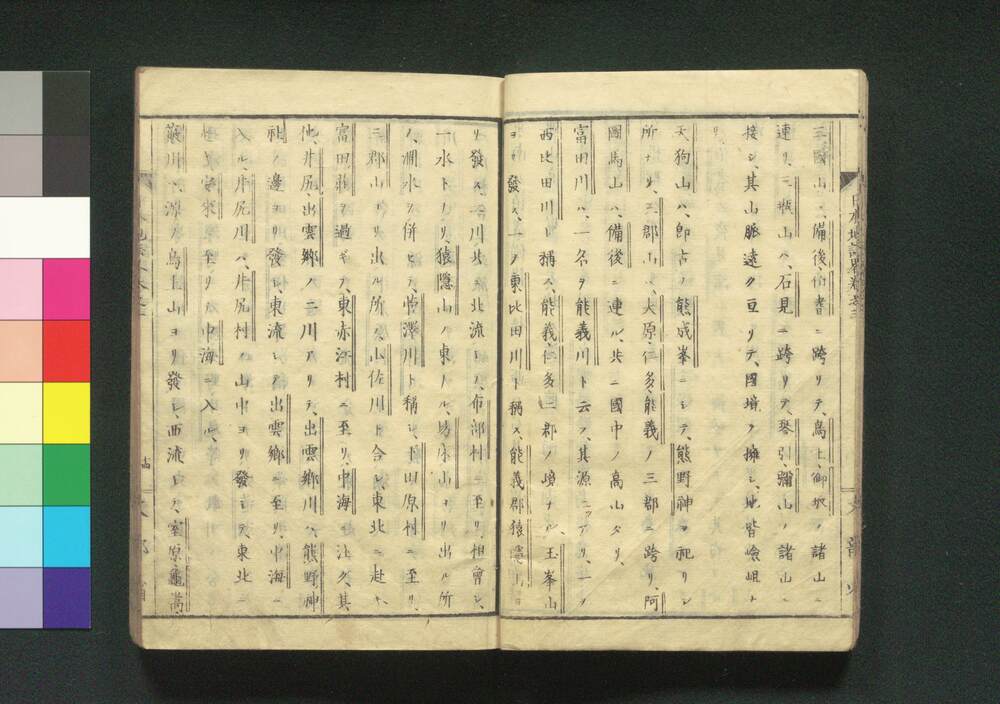 三國山ハ、備後、伯耆ニ跨リテ、鳥上、御坂ノ諸山ニ
連リ、三瓶山ハ、石見ニ跨リテ、琴引、彌山ノ諸山ニ
接シ、其山脈遠ク亘リテ、國境ヲ擁シ、地皆嶮岨ナリ
天狗山ハ、即古ノ熊成峯ニシテ、熊野神ヲ祀リシ
所ナリ、三郡山ハ、大原、仁多、能義ノ三郡ニ跨リ、阿
國馬山ハ、備後ニ連ル、共ニ國中ノ高山タリ、
富田川ハ、一名ヲ能義川ト云フ、其源二ツアリ、一ヲ
西比田川ト稱ス、能義、仁多二郡ノ境ナル、玉峯山
ヨリ發ス、一ヲ東比田川ト稱ス、能義郡猿隱山ヨ
リ發ス、二川共ニ北流シテ、布部村ニ至リ、相會シ、
一水トナリ、猿隱山ノ東ナル、坊床山ヨリ出ル所
ノ、澗水ヲ併セテ、中澤川ト稱シ、下田原村ニ至リ、
三郡山ヨリ出ル所ノ、山佐川ト合シ、東北ニ赴キ、
富田莊ヲ過ギテ、東赤江村ニ至リ、中海ニ注ク、其
他、井尻、出雲郷ノ二川アリテ、出雲郷川ハ、熊野神
社ノ邊ヨリ發シ、東流シテ出雲郷ニ至リ、中海ニ
入ル、井尻川ハ、井尻村ノ山中ヨリ發シテ、東北ニ
中海ニ入ル、
簸川ハ、源ヲ鳥上山ヨリ發シ、西流シテ、室原、龜嵩、